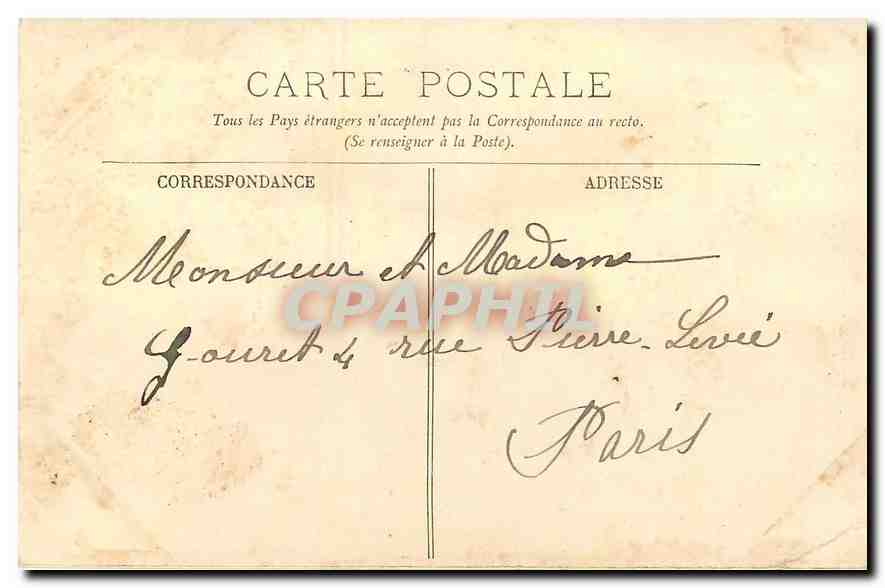 CARTE POSTALE
Tous les Pays étrangers n'acceptent pas la Correspondance au recto.
(Se renseigner à la Poste).
CORRESPONDANCE ADRESSE
Monsieur et Madame
CPAPHIL
Gouret 4 rue Pierre-Levée
Paris